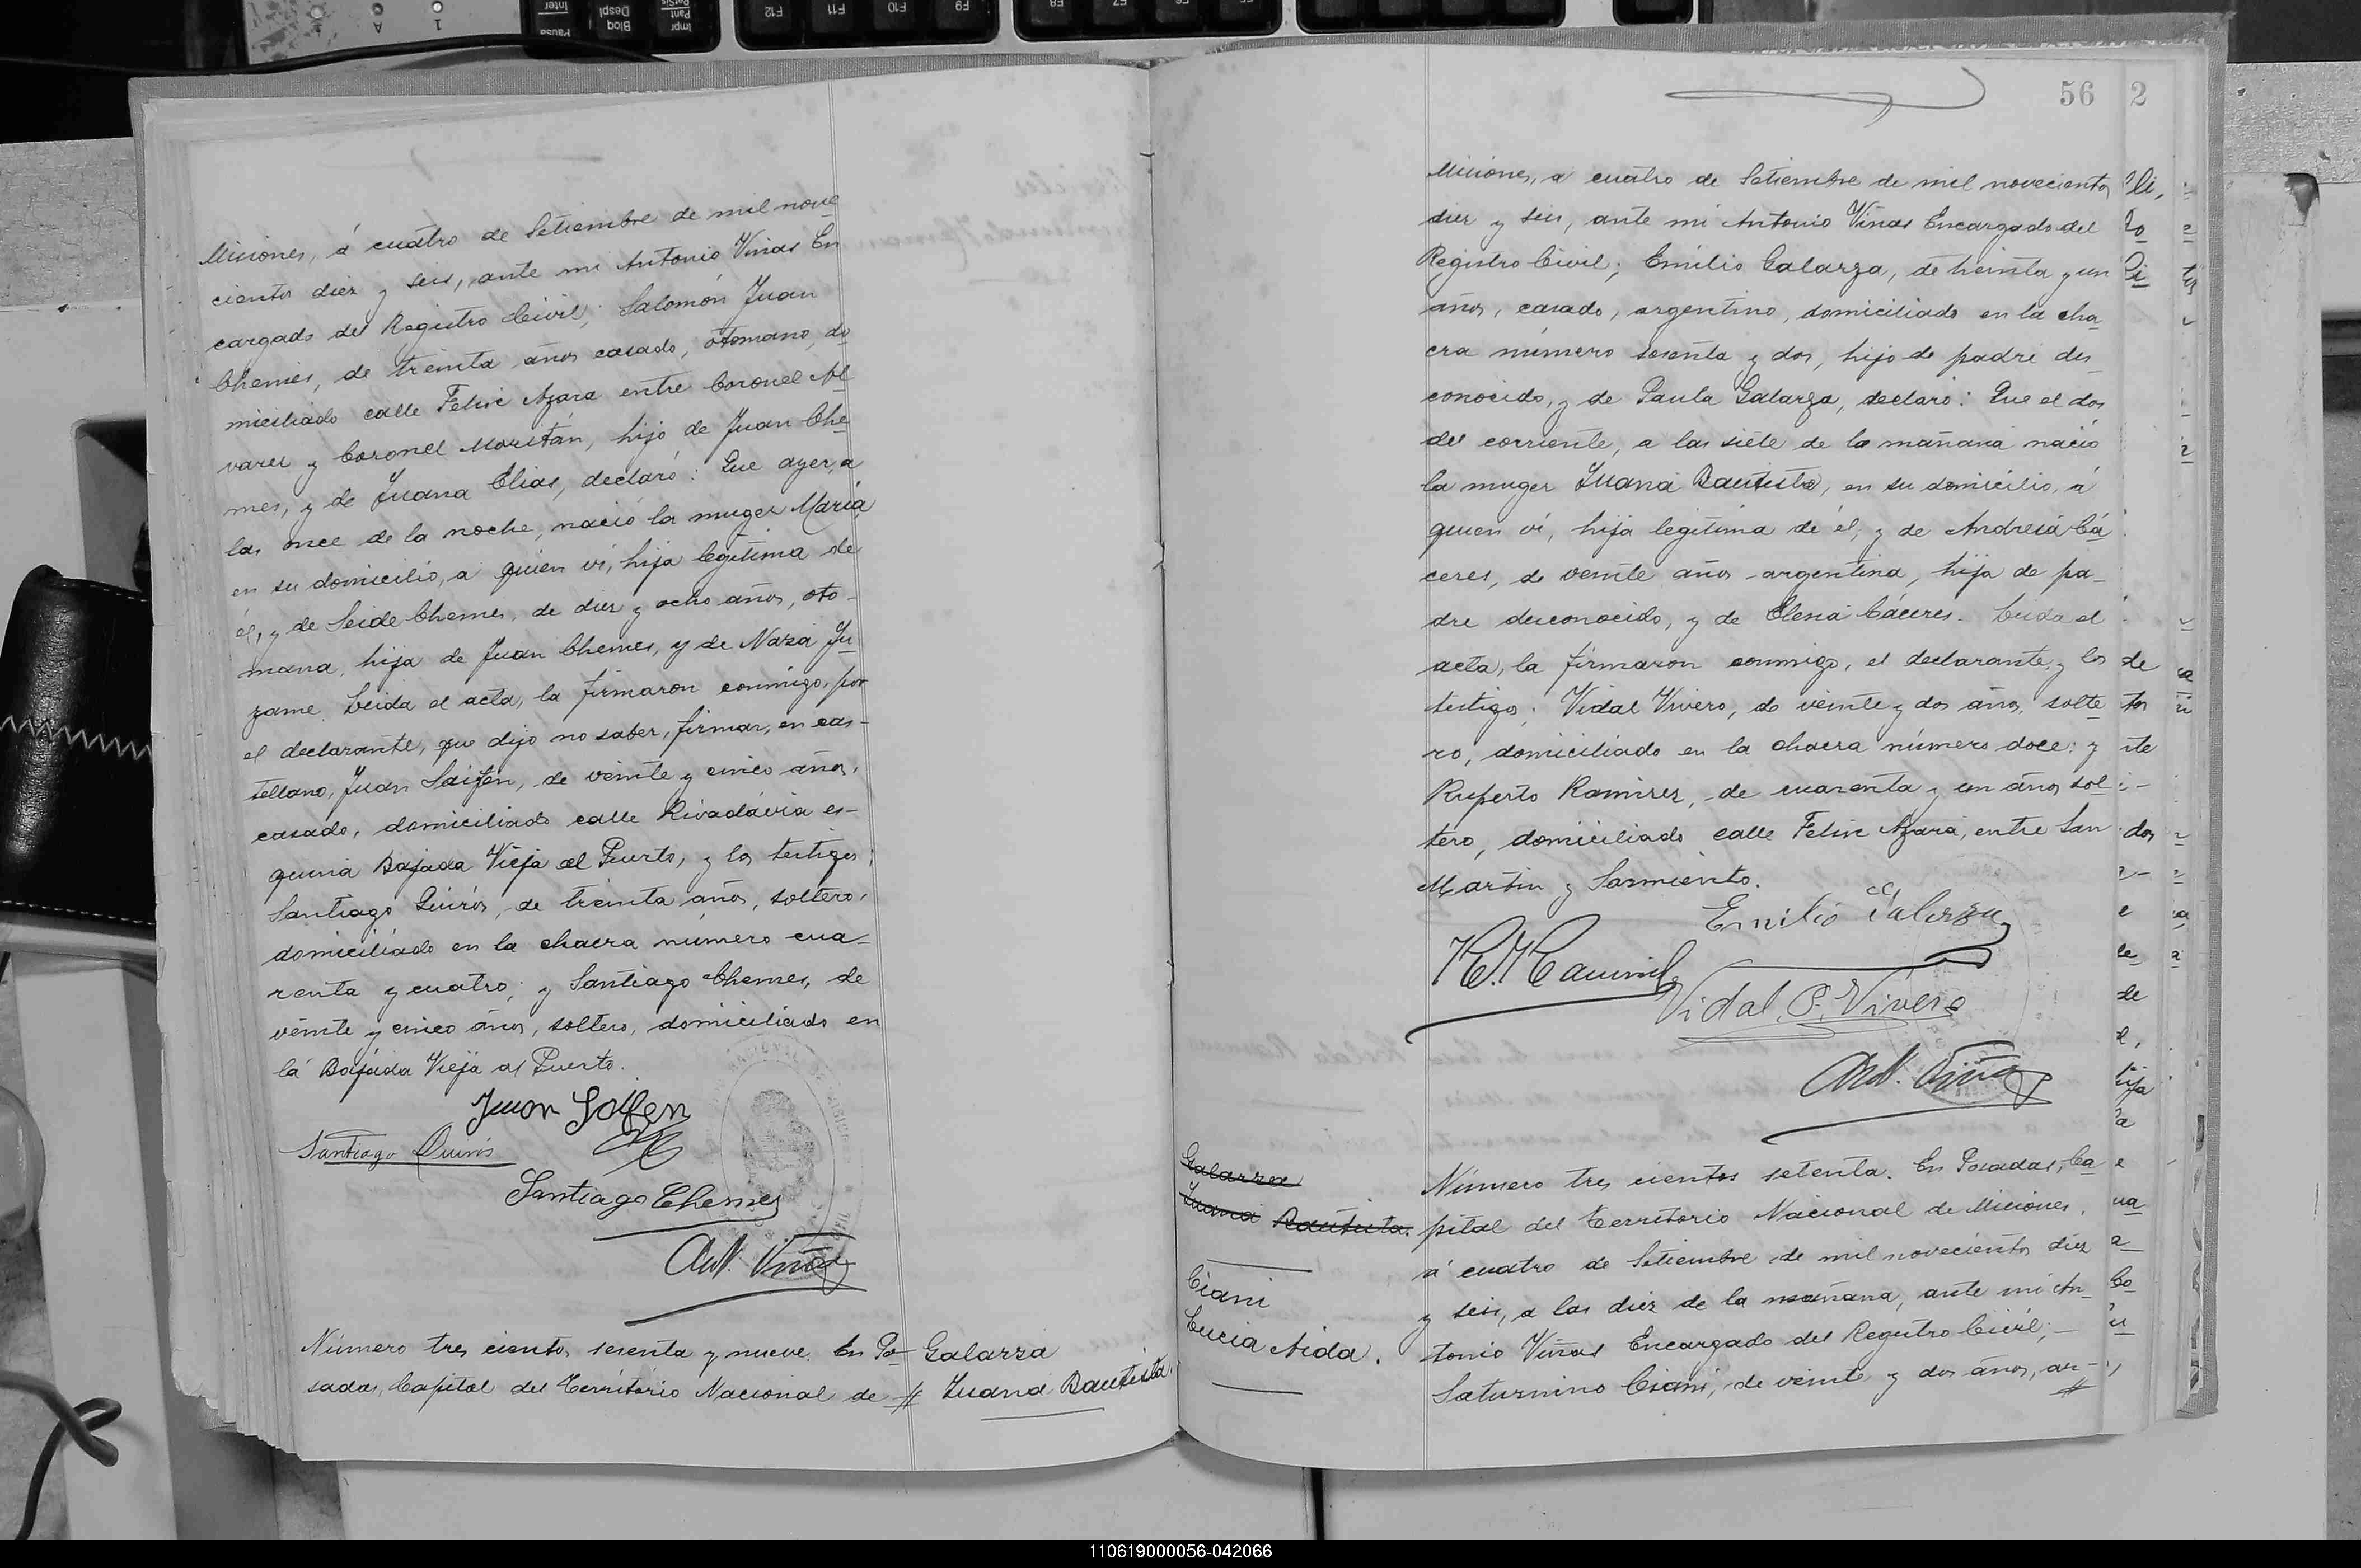 Misiones, á cuatro de Setiembre de mil nove
cientos diez y seis, ante mi Antonio Viñas En
cargado del Registro Civil; Salomón Juan
Chemes, de treinta años casado, otomano, do
miciliado calle Felix Azara entre Coronel Al
varez y Coronel Moritán, hijo de Juan Che
mes, y de Juana Elias, declaró: Que ayer, a
las once de la noche, nació la muger María
en su domicilio, a quien ví, hija legítima de
él, y de Seide Chemes, de diez y ocho años, oto-
mana, hija de Juan Chemes, y de Naza Ju
zame. Leida el acta, la firmaron conmigo, por
el declarante, que dijo no saber, firmar, en cas-
tellano, Juan Saifen, de veinte y cinco años,
casado, domiciliado calle Rivadávia es-
quina Bajada Vieja al Puerto, y los testigos;
Santiago Quirós, de treinta años, soltero,
domiciliado en la chacra número cua-
renta y cuatro; y Santiago Chemes, de
veinte y cinco años, soltero, domiciliado en
la Bajada Vieja al Puerto.
Juan Saifen
Santiago Quirós
Santiago Chemes
Ant. Viñas
Número tres cientos sesenta y nueve. En Po-
sadas, Capital del Territorio Nacional de #
Galarza
Juana Bautista.
56 2
Misiones, a cuatro de Setiembre de mil novecientos
diez y seis, ante mi Antonio Viñas Encargado del
Registro Civil; Emilio Galarza, de treinta y un
años, casado, argentino, domiciliado en la cha_
cra número sesenta y dos, hijo de padre des_
conocido, y de Paula Galarza, declaró: Que el dos
del corriente, a las siete de la mañana nació
la muger Juana Bautista, en su domicilio, á
quien ví, hija legítima de él, y de Andresa Cá
ceres, de veinte años argentina, hija de pa_
dre desconocido, y de Elena Cáceres. Leida el
acta, la firmaron conmigo, el declarante y los
testigos; Vidal Vivero, de veinte y dos años, solte
ro, domiciliado en la chacra número doce; y
Ruperto Ramirez, de cuarenta y un años sol
tero, domiciliado calle Felix Azara, entre San
Martin y Sarmiento.
Emilio Galarza
Vidal. P. Vivero
Ant. Viñas
Galarza
Juana Bautista.
Ciani
Lucia Aida.
Número tres cientos setenta. En Posadas, Ca
pital del Territorio Nacional de Misiones,
á cuatro de Setiembre de mil novecientos diez
y seis, a las diez de la mañana, ante mi An_
tonio Viñas Encargado del Registro Civil;
Saturnino Ciani, de veinte y dos años, ar-
#
110619000056-042066